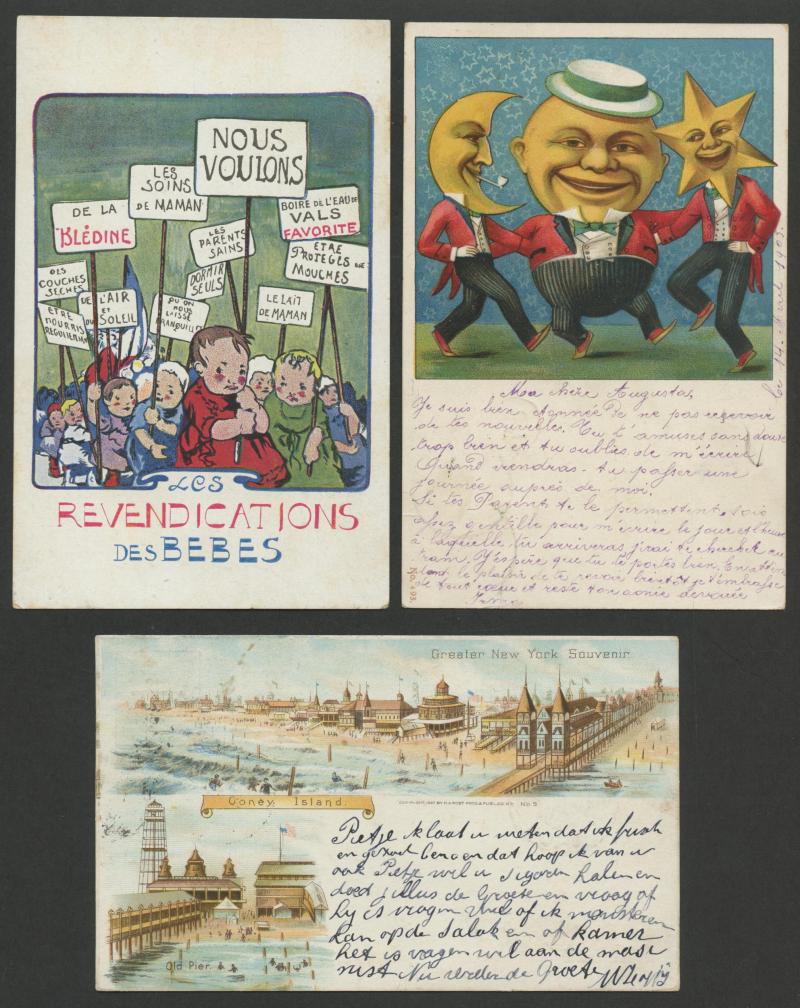 NOUS
VOULONS
LES
SOINS
DE MAMAN
DE LA
BLÉDINE
BOIRE DE L'EAU DE
VALS
FAVORITE
LES
PARENTS
SAINS
ÊTRE
PROTÉGÉS DES
MOUCHES
DORMIR
SEULS
DES
COUCHES
SECHES
DE L'AIR
ET
DU SOLEIL
QU'ON
NOUS
LAISSE
TRANQUILLE
LE LAIT
DE MAMAN
ÊTRE
NOURRIS
LES
REVENDICATIONS
DES BÉBÉS
le 14 Avril 1903.
Ma chère Augusta,
Je suis bien étonnée de ne pas recevoir
de tes nouvelles. Tu t'amuses sans doute
trop bien et tu oublies de m'écrire
Quand viendras-tu passer une
journée auprès de moi.
Si tes Parents te le permettent, sois
assez gentille pour m'écrire le jour et l'heure
à laquelle tu arriveras j'irai te chercher au
tram. J'espère que tu te portes bien. En atten
dant le plaisir de te revoir bientôt je t'embrasse
de tout cœur et reste ton amie dévouée
Irma
No. 93.
Greater New York Souvenir
Coney Island.
No. 5
Old Pier.
Pietje ik laat u weten dat ik frisch
en gezond ben en dat hoop ik van u
ook Pietje wil u sigaren halen en
de Groete en vraag of
hy is vragen wil of ik monsteren
kan op de Salak en of kamer
het is vragen wil aan de
Nu verder de Groete